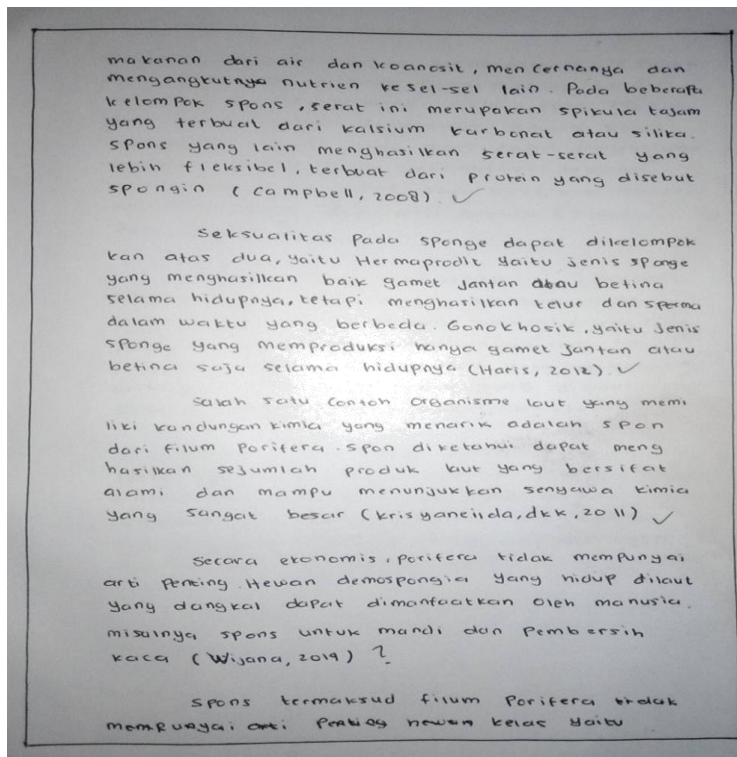 makanan dari air dan koanosit, mencernanya dan
mengangkutnya nutrien ke sel-sel lain. Pada beberapa
kelompok spons, serat ini merupakan spikula tajam
yang terbuat dari kalsium karbonat atau silika.
spons yang lain menghasilkan serat-serat yang
lebih fleksibel, terbuat dari protein yang disebut
spongin (Campbell, 2008). ✓
Seksualitas Pada sponge dapat dikelompok
kan atas dua, yaitu Hermaprodit yaitu jenis sponge
yang menghasilkan baik gamet jantan atau betina
selama hidupnya, tetapi menghasilkan telur dan sperma
dalam waktu yang berbeda. Gonokhosik, yaitu Jenis
sponge yang memproduksi hanya gamet jantan atau
betina saja selama hidupnya (Haris, 2012). ✓
Salah satu contoh organisme laut yang memi
liki kandungan kimia yang menarik adalah spon
dari filum Porifera. spon diketahui dapat meng
hasilkan sejumlah produk laut yang bersifat
alami dan mampu menunjukkan senyawa kimia
yang sangat besar (krisyaneilda, dkk, 2011) ✓
Secara ekonomis, porifera tidak mempunyai
arti penting. Hewan demospongia yang hidup dilaut
yang dangkal dapat dimanfaatkan oleh manusia.
misalnya spons untuk mandi dan Pembersih
kaca (Wijana, 2019) ?
Spons termaksud filum Porifera tidak
mempunyai arti Penting hewan kelas yaitu